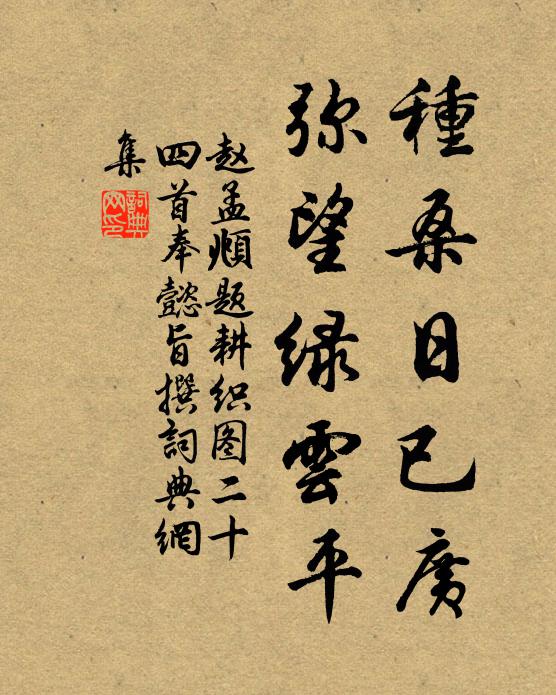 種桑日已廣
弥望緑雲平
赵孟頫题耕织图二十
四首奉懿旨撰詞典網
集
詞典
网印